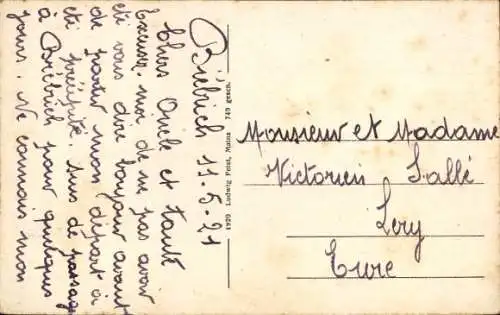 Biebrich 11-5-21
Chers Oncle et tante
Excusez-moi de ne pas avoir
été vous dire bonjour avant
de partir mon départ a
été précipité. Suis de passage
à Biebrich pour quelques
jours. Ne connais mon
1920 Ludwig Feist, Mainz 749 gesch.
Monsieur et Madame
Victorien Sallé
Léry
Eure